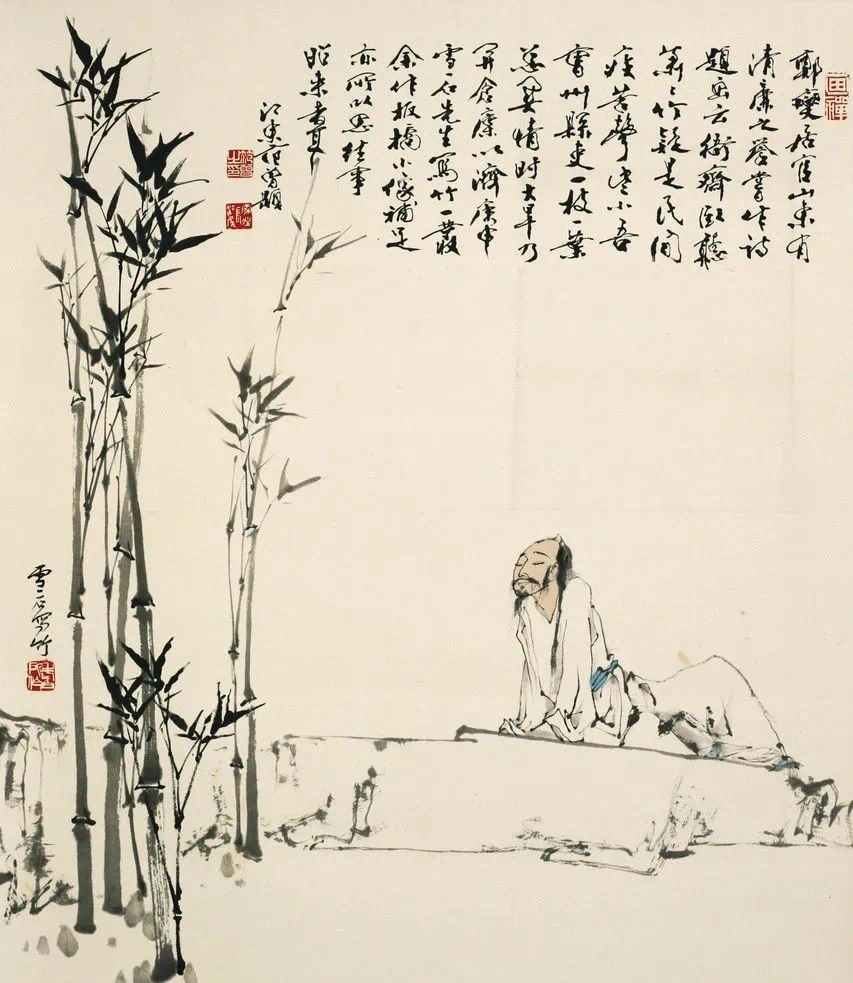 鄭燮居官山東有
清廉之譽嘗作詩
題画云衙齋卧聽
蕭〻竹疑是民間
疾苦聲些小吾
曹州縣吏一枝一葉
總関情時大旱乃
開倉廩以濟庚申
雪石先生寫竹一叢
余作板橋小像補足
亦所以思往事
昭来者耳
江東范曾題
雪石寫竹